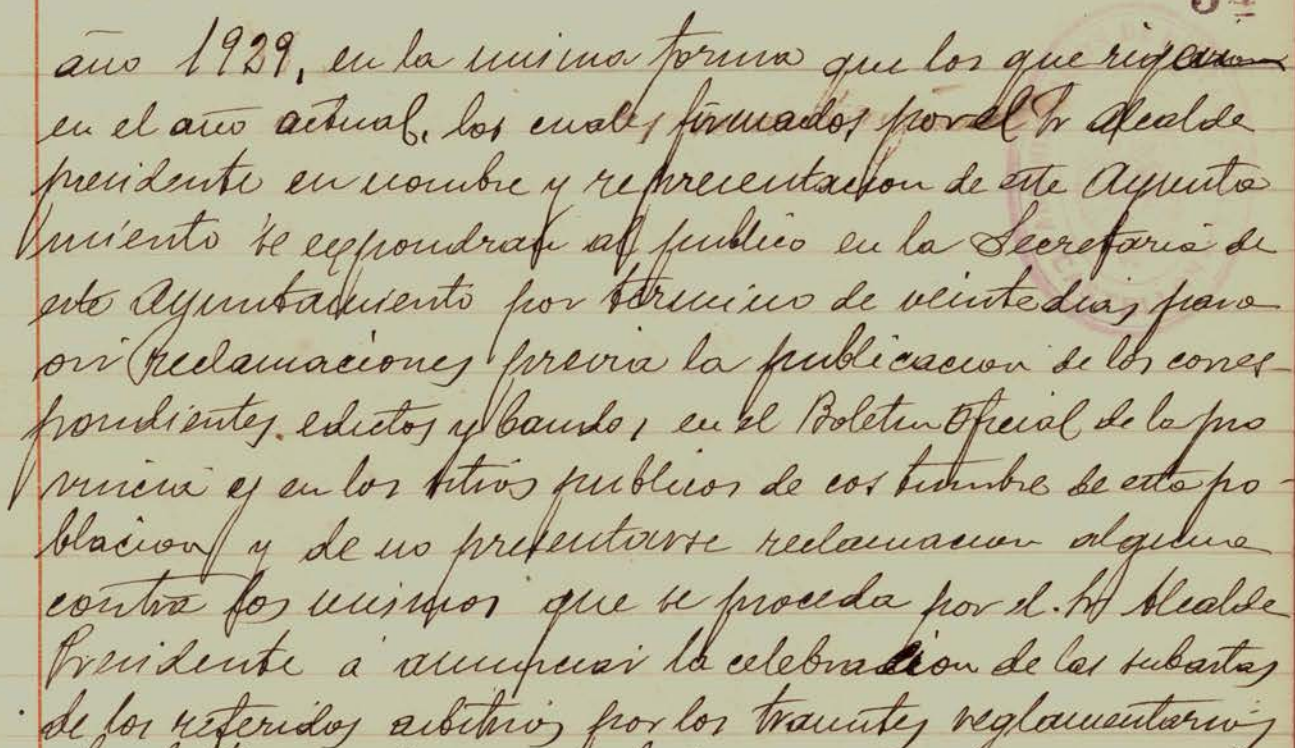 año 1929, en la misma forma que los que rigen
en el año actual, los cuales firmados por el Sr Alcalde
presidente en nombre y representacion de este Ayunta
miento se expondran al publico en la Secretaria de
este Ayuntamiento por término de veinte dias para
oir reclamaciones previa la publicacion de los corres-
pondientes edictos y bandos en el Boletin Oficial de la pro
vincia y en los sitios publicos de costumbre de esta po-
blacion y de no presentarse reclamacion alguna
contra los mismos que se proceda por el Sr Alcalde
Presidente á anunciar la celebracion de las subastas
de los referidos arbitrios por los tramites reglamentarios